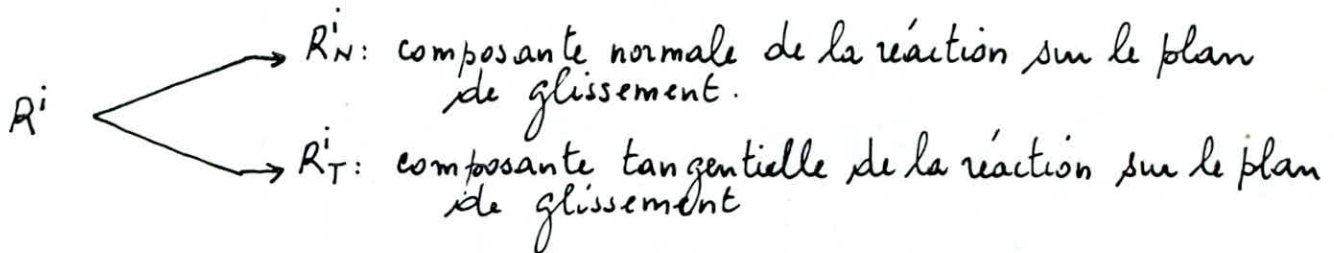 R^i_N: composante normale de la réaction sur le plan
de glissement.
R^i
R^i_T: composante tangentielle de la réaction sur le plan
de glissement